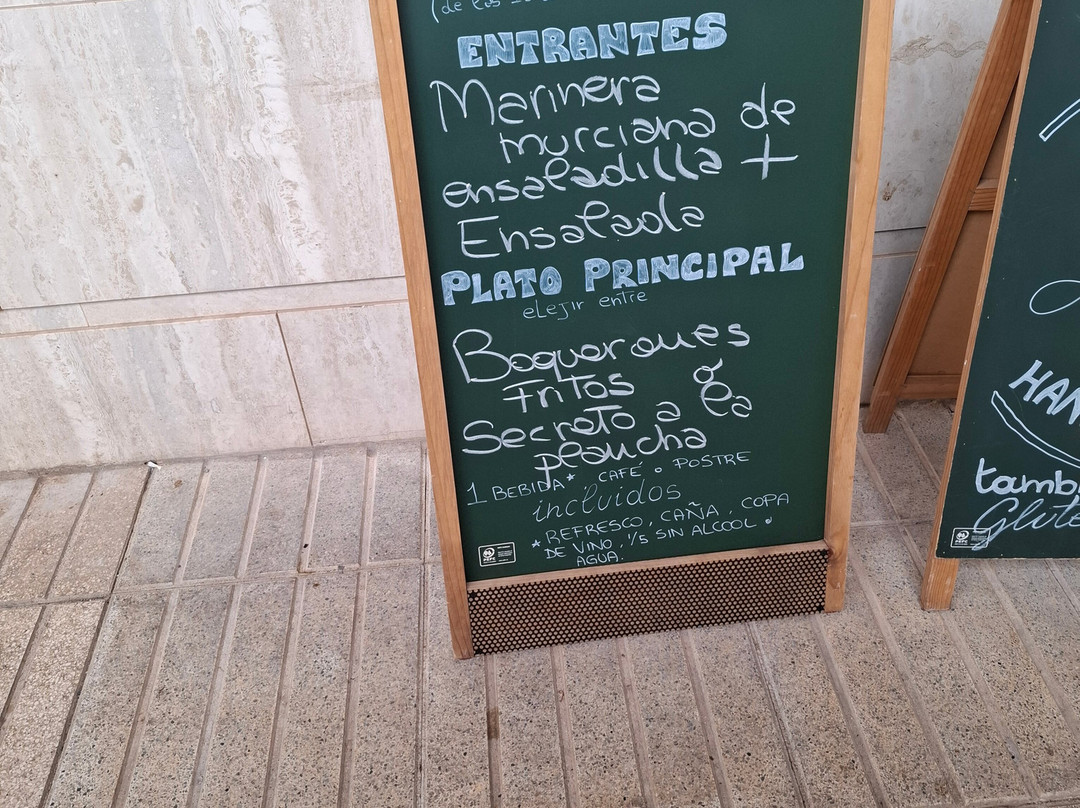 (de los
ENTRANTES
Marinera
murciana de
ensaladilla +
Ensalada
PLATO PRINCIPAL
elejir entre
Boquerones
Fritos o
Secreto a la
plancha
1 BEBIDA* CAFÉ o POSTRE
incluidos
*REFRESCO, CAÑA, COPA
DE VINO, 1/5 SIN ALCOOL o
AGUA.
HAN
tamb
Glute